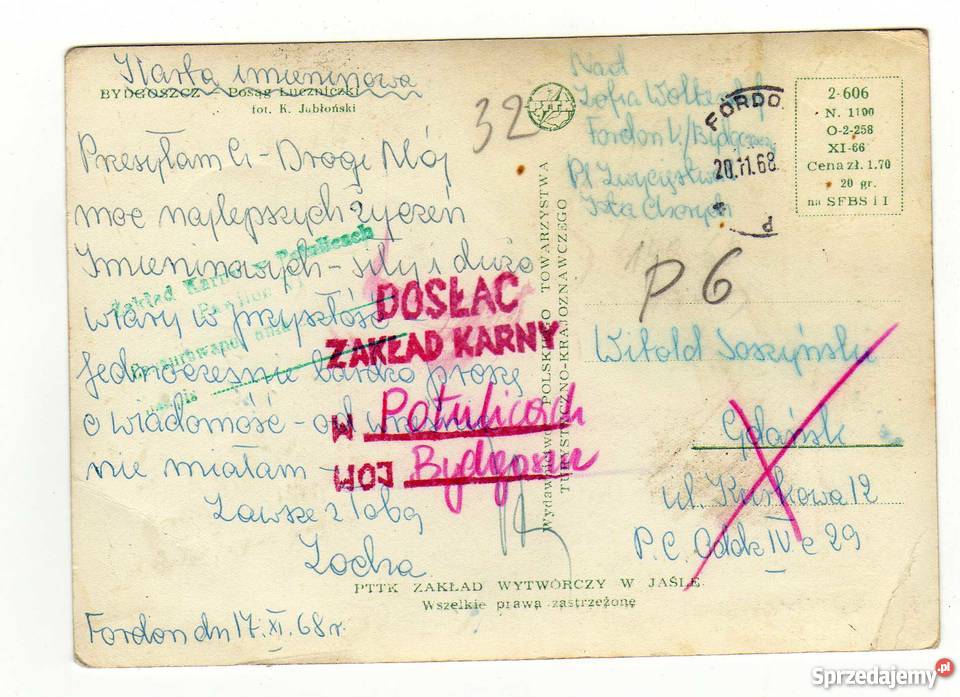 Karta imieninowa
BYDGOSZCZ - Posąg Łuczniczki
fot. K. Jabłoński
Przesyłam Ci - Drogi Mój
moc najlepszych życzeń
Imieninowych - siły i dużo
wiary w przyszłość -
Jednocześnie bardzo proszę
o wiadomość - od września
nie miałam -
Zawsze z Tobą
Zocha
Fordon dn 17.XI.68 r.
Zakład Karny w Potulicach
DOSŁAC
ZAKŁAD KARNY
W Potulicach
WOJ Bydgoszcz
32
PTTK
Wydawnictwo POLSKIEGO TOWARZYSTWA
TURYSTYCZNO-KRAJOZNAWCZEGO
Nad
Zofia
Fordon k/Bydgoszczy
Pl Zwycięstwa
Izba Chorych
FORDO
20.11.68
2-606
N. 1100
O-2-258
XI-66
Cena zł. 1.70
20 gr.
na SFBS i I
P 6
Witold Soszyński
Gdańsk
ul Kurkowa 12
P.C. Oddz IV c 29
PTTK ZAKŁAD WYTWÓRCZY W JAŚLE
Wszelkie prawa zastrzeżone
Sprzedajemy.pl